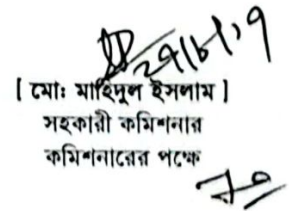 [ মো: মাহিদুল ইসলাম ]
সহকারী কমিশনার
কমিশনারের পক্ষে